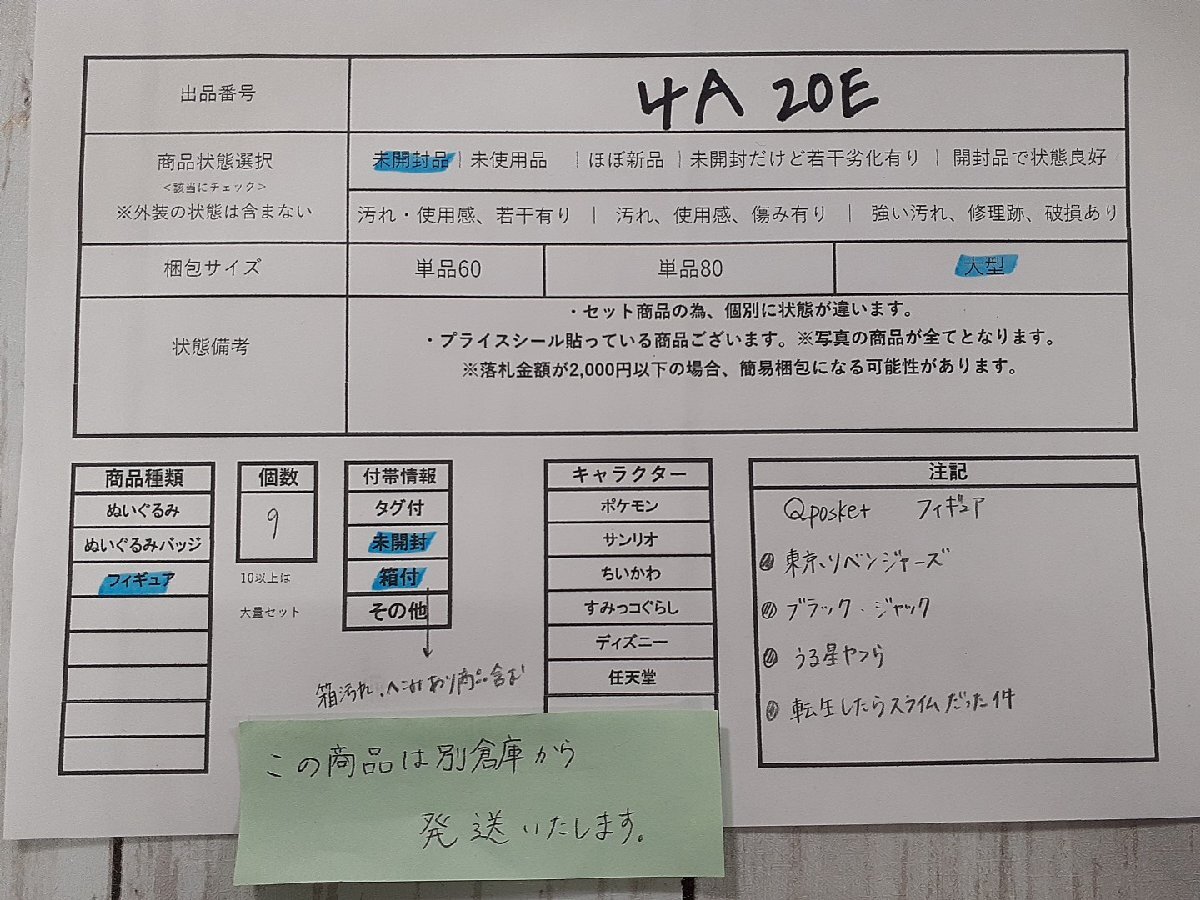 出品番号
4A 20E
商品状態選択
<該当にチェック>
※外装の状態は含まない
未開封品 | 未使用品 | ほぼ新品 | 未開封だけど若干劣化有り | 開封品で状態良好
汚れ・使用感、若干有り | 汚れ、使用感、傷み有り | 強い汚れ、修理跡、破損あり
梱包サイズ
単品60
単品80
大型
状態備考
・セット商品の為、個別に状態が違います。
・プライスシール貼っている商品ございます。※写真の商品が全てとなります。
※落札金額が2,000円以下の場合、簡易梱包になる可能性があります。
商品種類
ぬいぐるみ
ぬいぐるみバッジ
フィギュア
個数
9
10以上は
大量セット
付帯情報
タグ付
未開封
箱付
その他
箱汚れ、ヘこみあり商品含む
キャラクター
ポケモン
サンリオ
ちいかわ
すみっコぐらし
ディズニー
任天堂
注記
Qposket フィギュア
東京リベンジャーズ
ブラック・ジャック
うる星やつら
転生したらスライムだった件
この商品は別倉庫から
発送いたします。